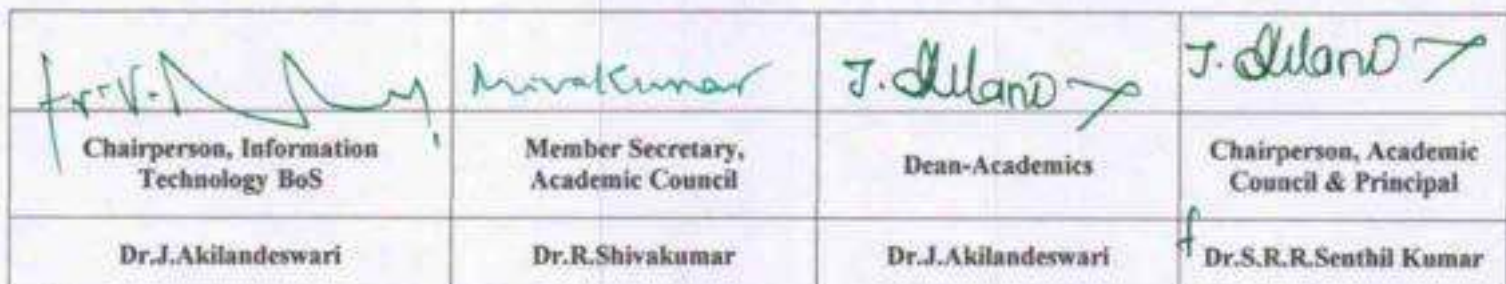 Chairperson, Information
Technology BoS
Member Secretary,
Academic Council
Dean-Academics
Chairperson, Academic
Council & Principal
Dr.J.Akilandeswari
Dr.R.Shivakumar
Dr.J.Akilandeswari
Dr.S.R.R.Senthil Kumar